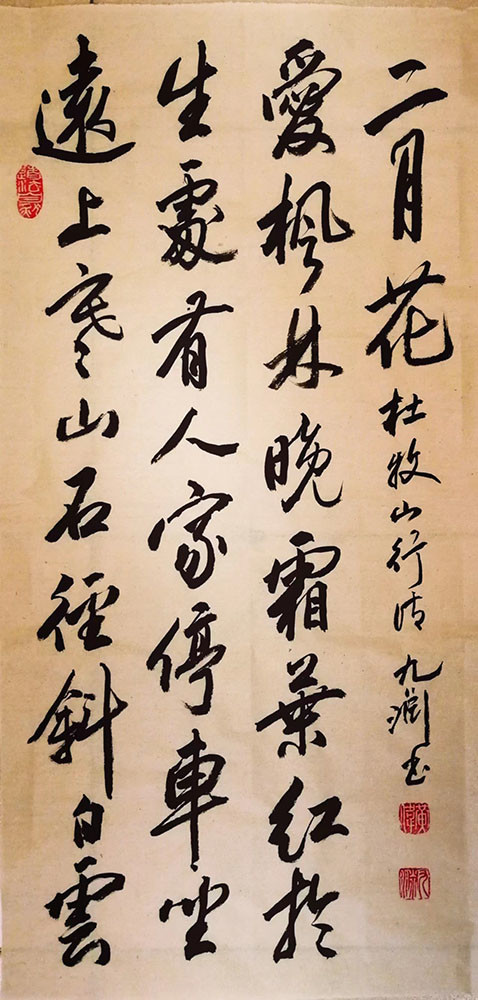 遠上寒山石徑斜白雲
生處有人家停車坐
愛楓林晚霜葉紅於
二月花
杜牧山行诗 九 书